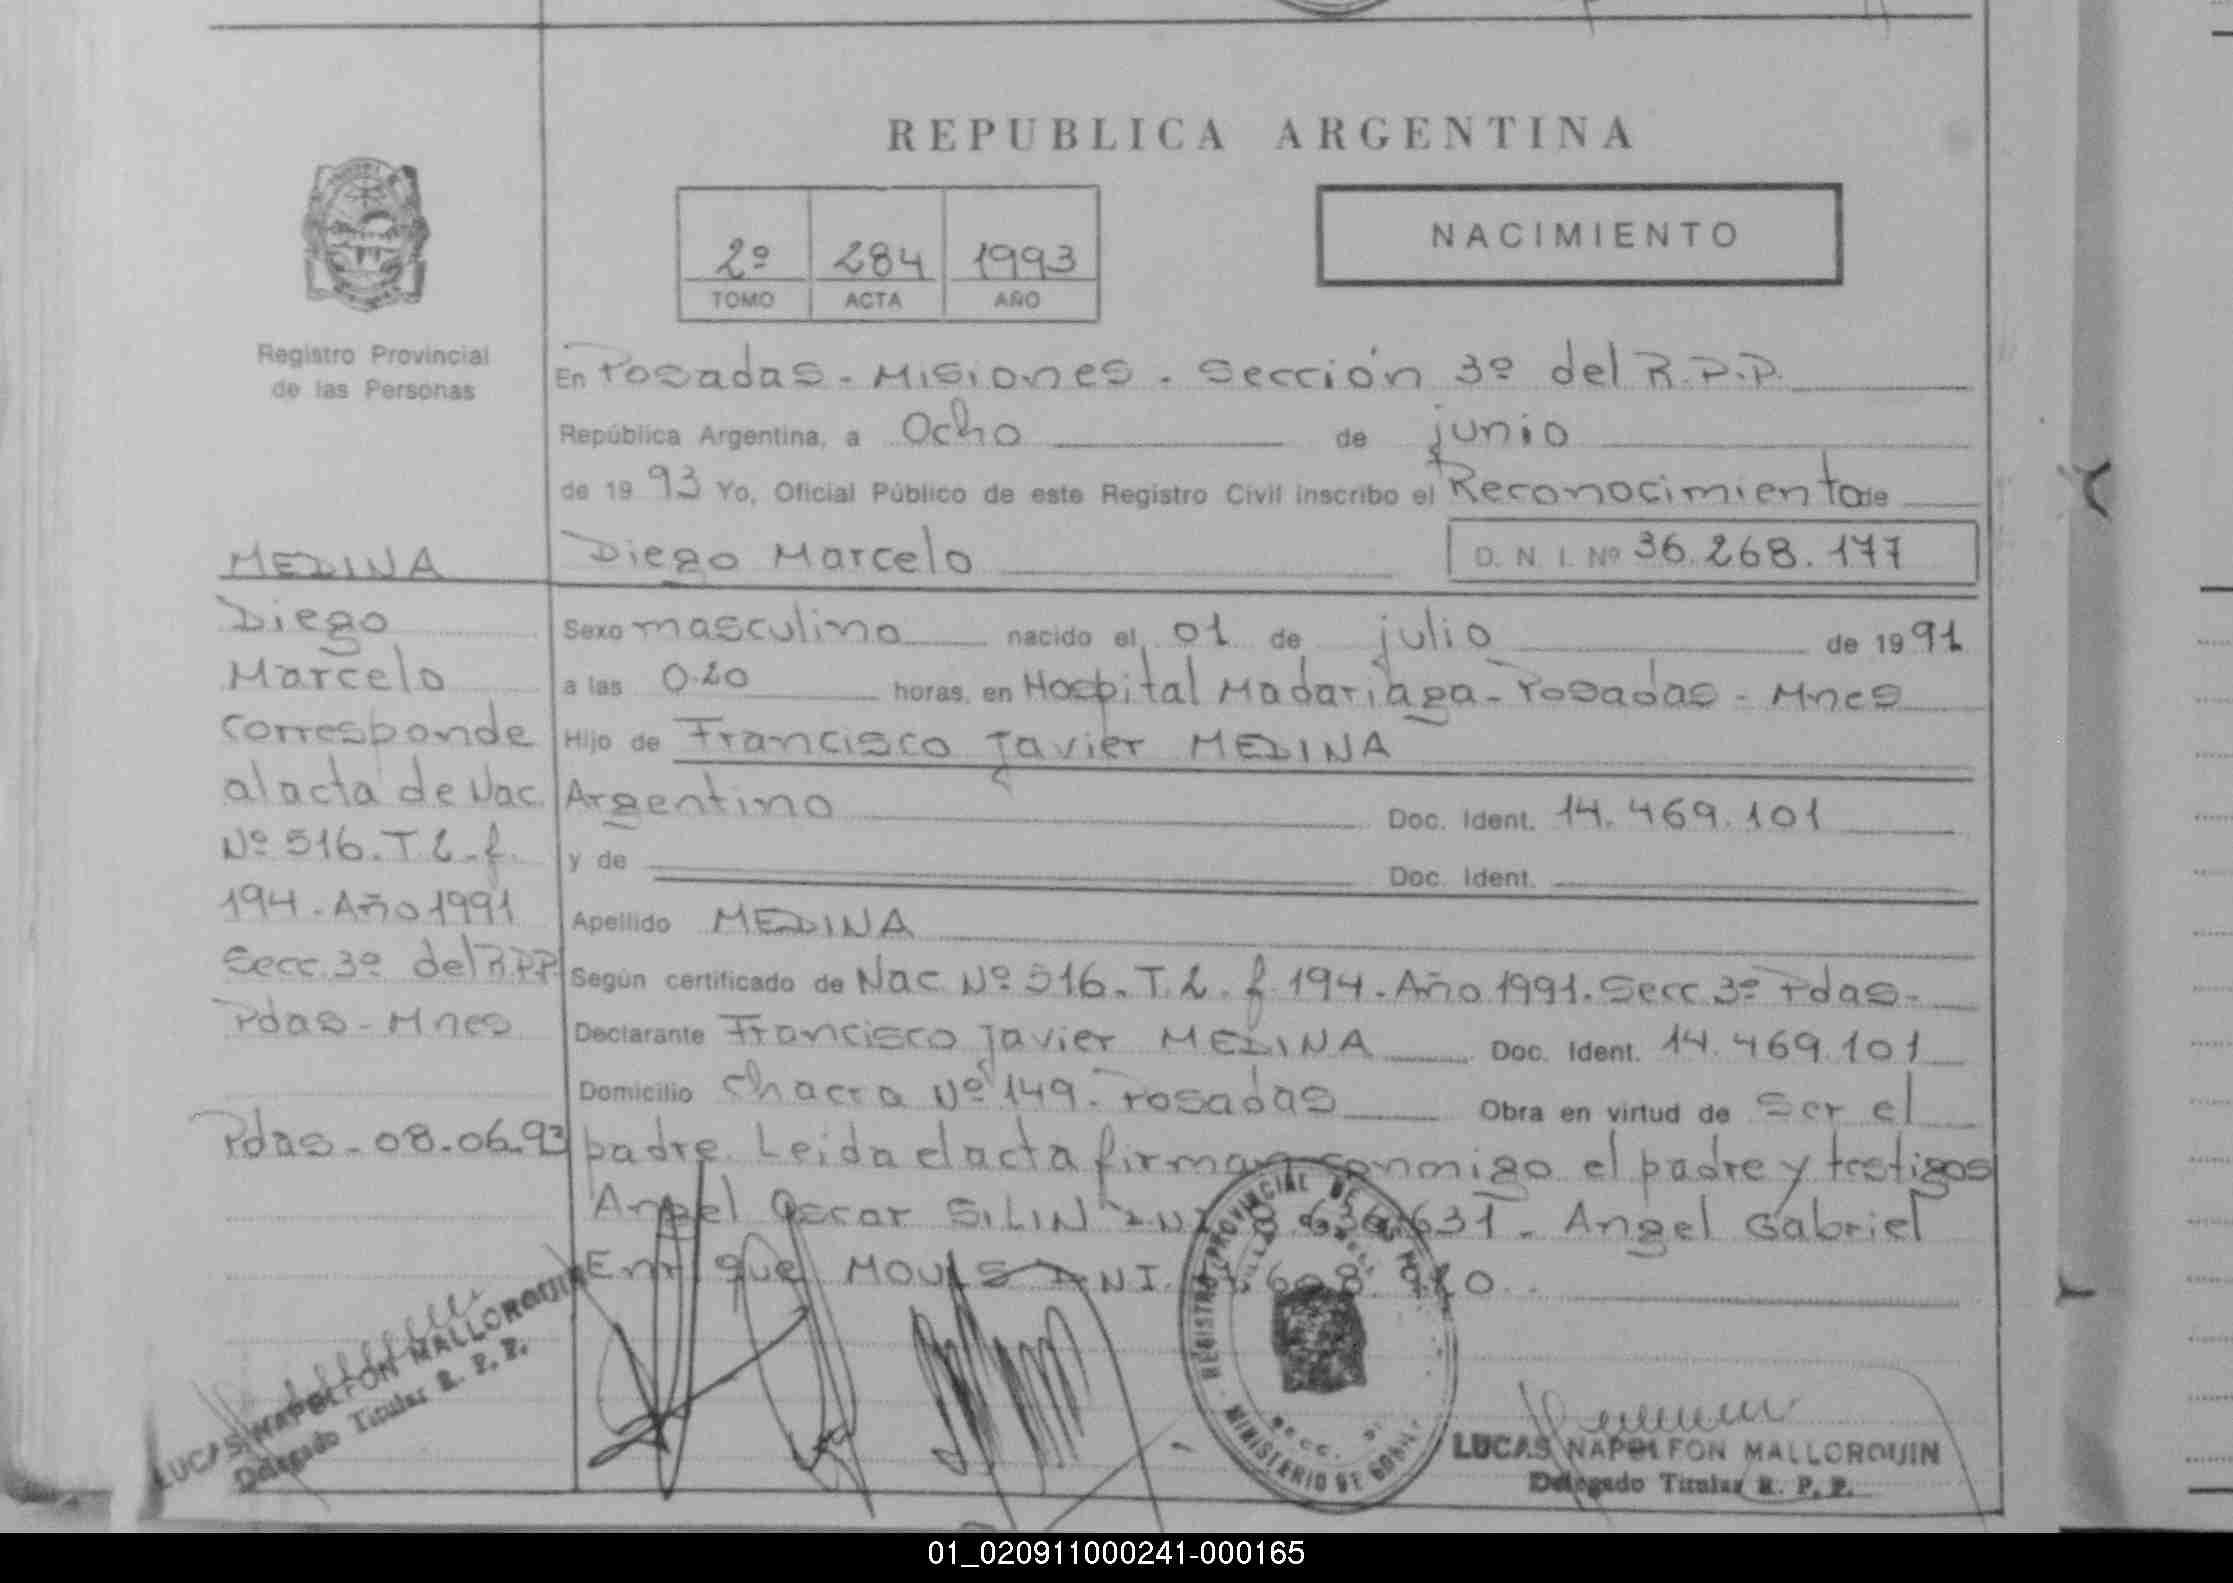 REPUBLICA ARGENTINA
2º 284 1993
TOMO ACTA AÑO
NACIMIENTO
Registro Provincial
de las Personas
En Posadas - Misiones. Sección 3º del R.P.P.
República Argentina, a Ocho de junio
de 1993 Yo, Oficial Público de este Registro Civil inscribo el Reconocimiento de
Diego Marcelo D. N. I. Nº 36.268.177
Sexo masculino nacido el 01 de julio de 1991
a las 0.20 horas, en Hospital Madariaga - Posadas - Mnes
Hijo de Francisco Javier MEDINA
Argentino Doc. Ident. 14.469.101
y de Doc. Ident.
Apellido MEDINA
Según certificado de Nac. Nº 516. T.2. f 194. Año 1991. Secc. 3º Pdas-
Declarante Francisco Javier MEDINA Doc. Ident. 14.469.101
Domicilio Chacra Nº 149. Posadas Obra en virtud de Ser el
padre. Leida el acta firman conmigo el padre y testigos
Angel Oscar SILIN DNI 631 - Angel Gabriel
Enrique DNI.
MEDINA
Diego
Marcelo
corresponde
al acta de Nac.
Nº 516. T.2. f.
194. Año 1991
Secc. 3º del R.P.P.
Pdas - Mnes
Pdas - 08.06.93
LUCAS NAPOLEON MALLORQUIN
Delegado Titular R. P. P.
REGISTRO PROVINCIAL DE LAS
MINISTERIO DE
SECC.
LUCAS NAPOLEON MALLORQUIN
Delegado Titular R. P. P.
01_020911000241-000165